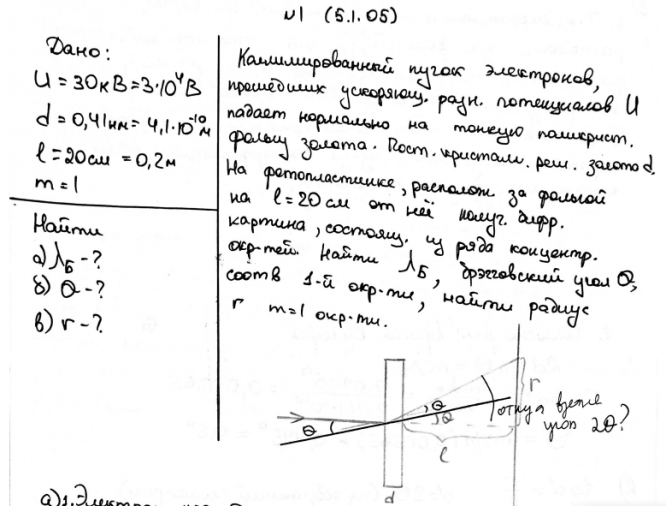 N1 (5.1.05)
Дано:
U = 30кВ = 3·10⁴В
d = 0,41нм = 4,1·10⁻¹⁰м
l = 20см = 0,2м
m = 1
Найти
а) λБ - ?
б) Θ - ?
в) r - ?
Коллимированный пучок электронов,
прошедших ускоряющ. разн. потенциалов U
падает нормально на тонкую поликрист.
фольгу золота. Пост. кристалл. реш. золота d.
На фотопластинке, располож за фольгой
на l = 20см от неё получ. дифр.
картина, состоящ. из ряда концентр.
окр-тей. Найти λБ, брэгговский угол Θ,
соотв 1-й окр-ти, найти радиус
r m=1 окр-ти.
Θ
Θ
Θ
r
l
d
откуда взяли
угол 2Θ?
а) 1. Электрон